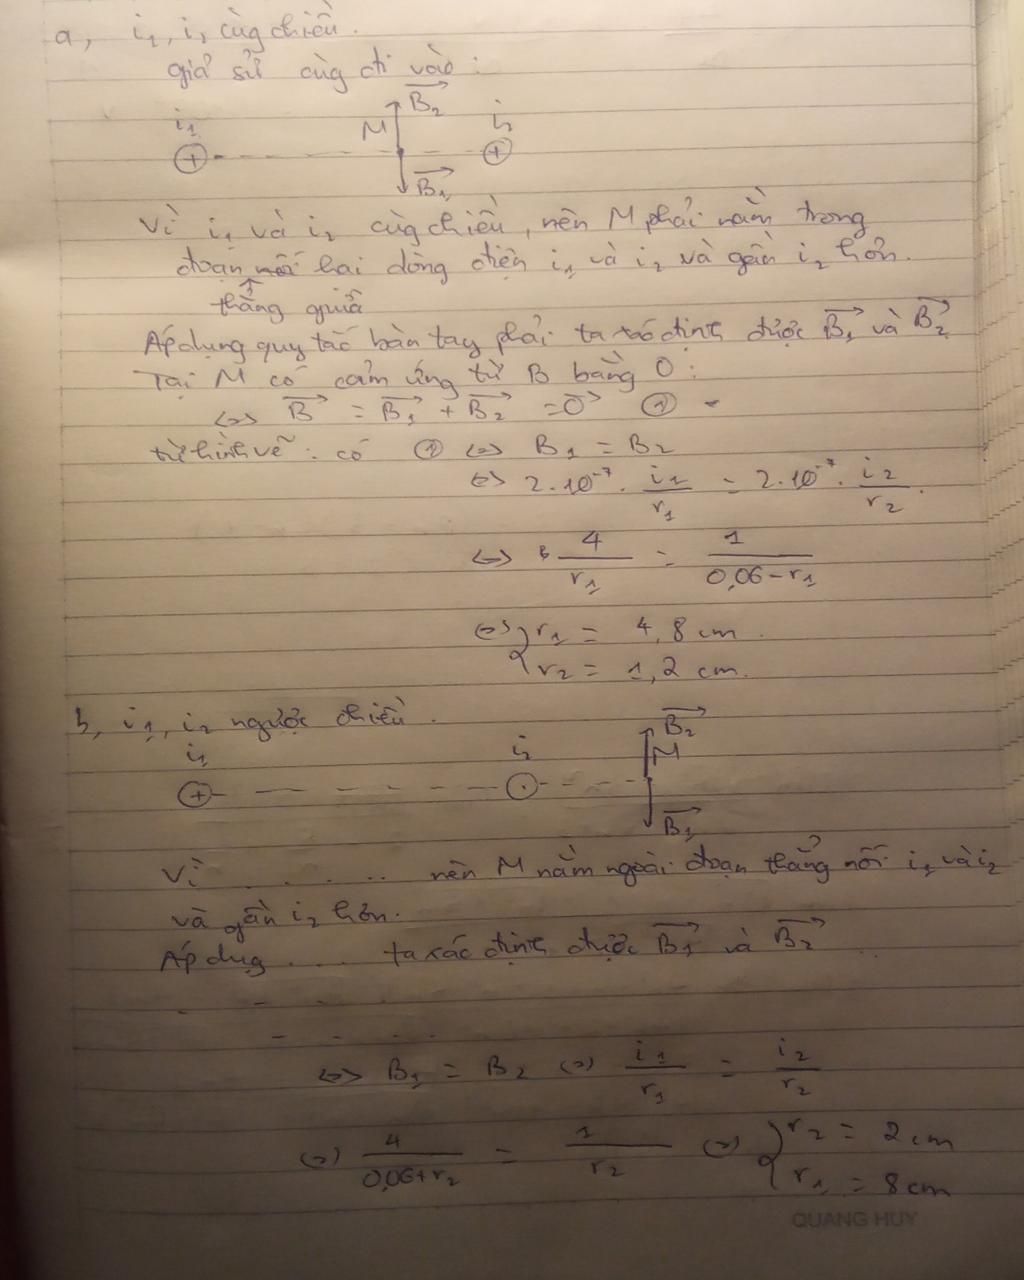 a, i₁, i₂ cùng chiều.
giả sử cùng đi vào:
B₂→
i₁ M i₂
B₁→
Vì i₁ và i₂ cùng chiều, nên M phải nằm trong
đoạn hai dòng điện i₁ và i₂ và gần i₂ hơn.
thẳng giữa
Áp dụng quy tắc bàn tay phải ta xác định được B₁→ và B₂→
Tại M có cảm ứng từ B bằng 0:
<=> B→ = B₁→ + B₂→ = 0→ ①
từ hình vẽ: có ① <=> B₁ = B₂
<=> 2.10⁻⁷ . i₁/r₁ = 2.10⁻⁷ . i₂/r₂.
<=> 4/r₁ = 1/(0,06-r₁)
<=> { r₁ = 4,8 cm.
r₂ = 1,2 cm.
b, i₁, i₂ ngược chiều.
B₂→
i₁ i₂ M
B₁→
Vì ...... nên M nằm ngoài đoạn thẳng nối i₁ và i₂
và gần i₂ hơn.
Áp dụg .... ta xác định được B₁→ và B₂→
<=> B₁ = B₂ <=> i₁/r₁ = i₂/r₂
<=> 4/(0,06+r₂) = 1/r₂ <=> { r₂ = 2 cm
r₁ = 8 cm
QUANG HUY